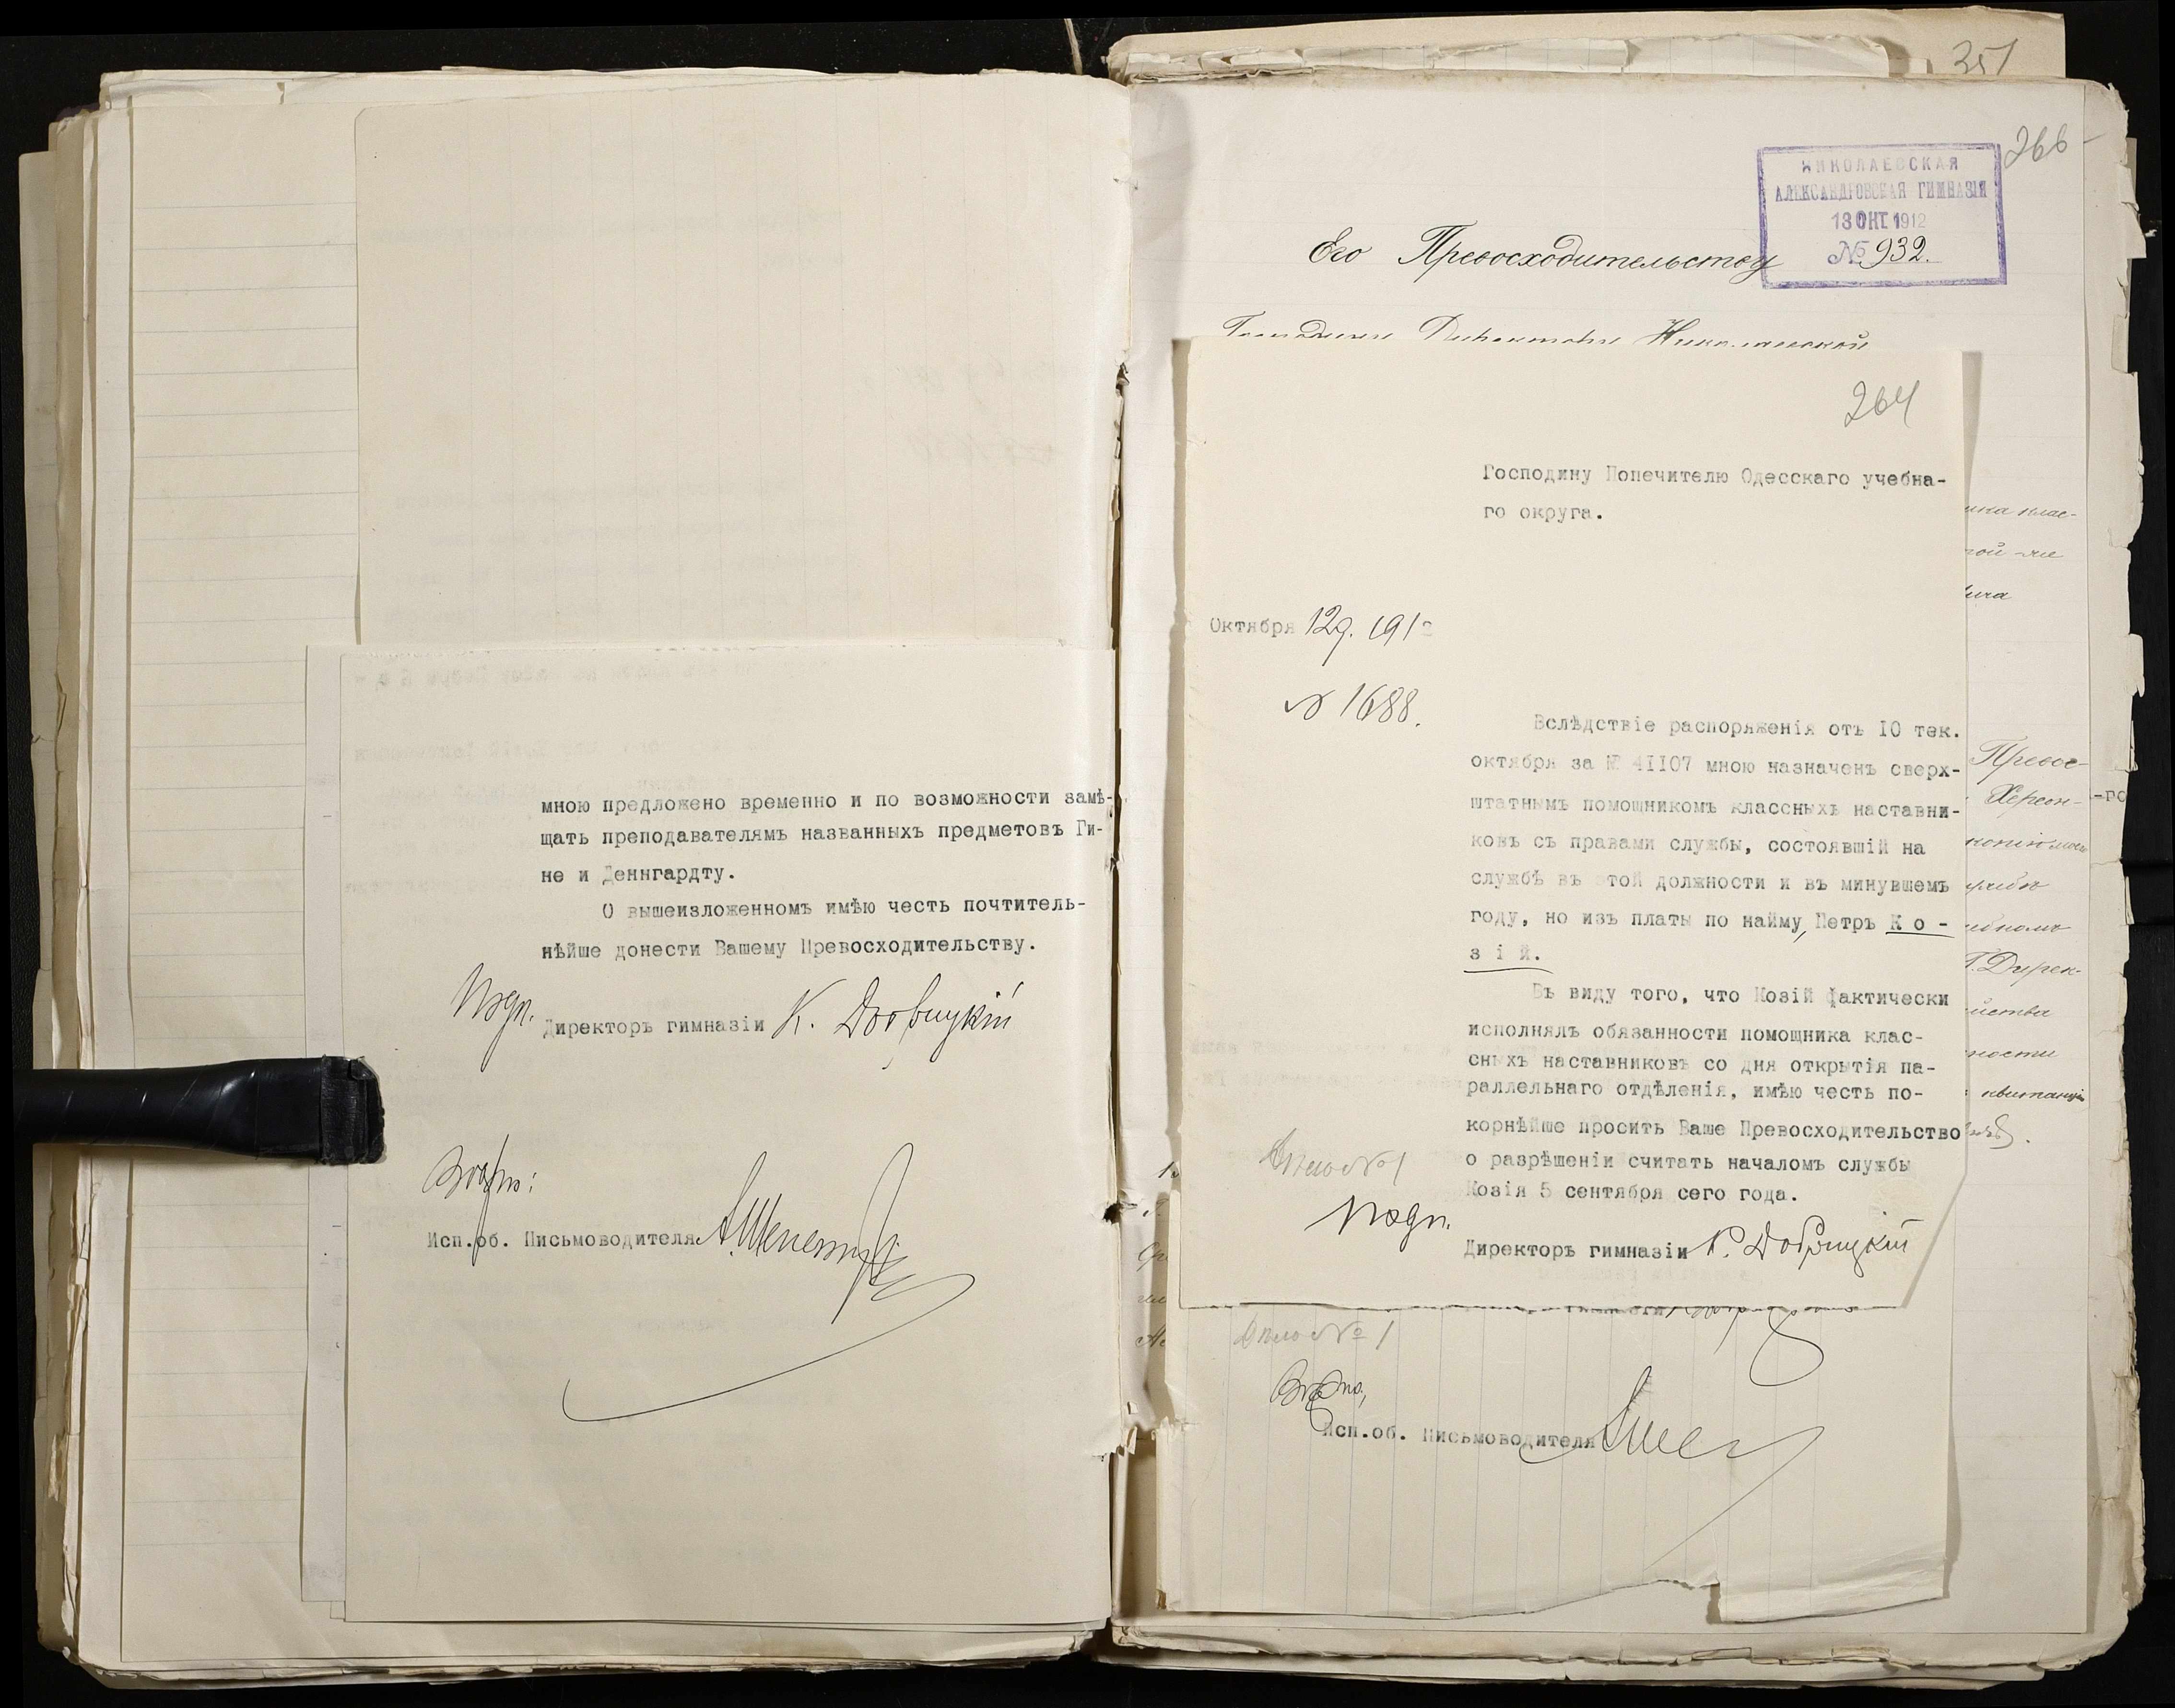 мною предложено временно и по возможности замѣ-
щать преподавателямъ названныхъ предметовъ Ги-
не и Деннгардту.
О вышеизложенномъ имѣю честь почтитель-
нѣйше донести Вашему Превосходительству.
Подп. Директоръ гимназіи К.
Вѣрно:
Исп.об. Письмоводителя
251
266
НИКОЛАЕВСКАЯ
АЛЕКСАНДРОВСКАЯ ГИМНАЗІЯ
13 ОКТ 1912
№ 932.
Его Превосходительству
Господину Директору Николаевской
264
Господину Попечителю Одесскаго учебна-
го округа.
Октября 12д. 191
№ 1688.
Вслѣдствіе распоряженія отъ IO тек.
октября за № 4II07 мною назначенъ сверх-
штатнымъ помощникомъ классныхъ наставни-
ковъ съ правами службы, состоявшій на
службѣ въ этой должности и въ минувшемъ
году, но изъ платы по найму, Петръ К о -
з і й.
Въ виду того, что Козій фактически
исполнялъ обязанности помощника клас-
сныхъ наставниковъ со дня открытія па-
раллельнаго отдѣленія, имѣю честь по-
корнѣйше просить Ваше Превосходительство
о разрѣшеніи считать началомъ службы
Козія 5 сентября сего года.
Дѣло № 1
Подп.
Директоръ гимназіи К.
Дѣло № 1
Вѣрно,
Исп.об. Письмоводителя
Превос-
Херсон-
-го
Г. Дирек-